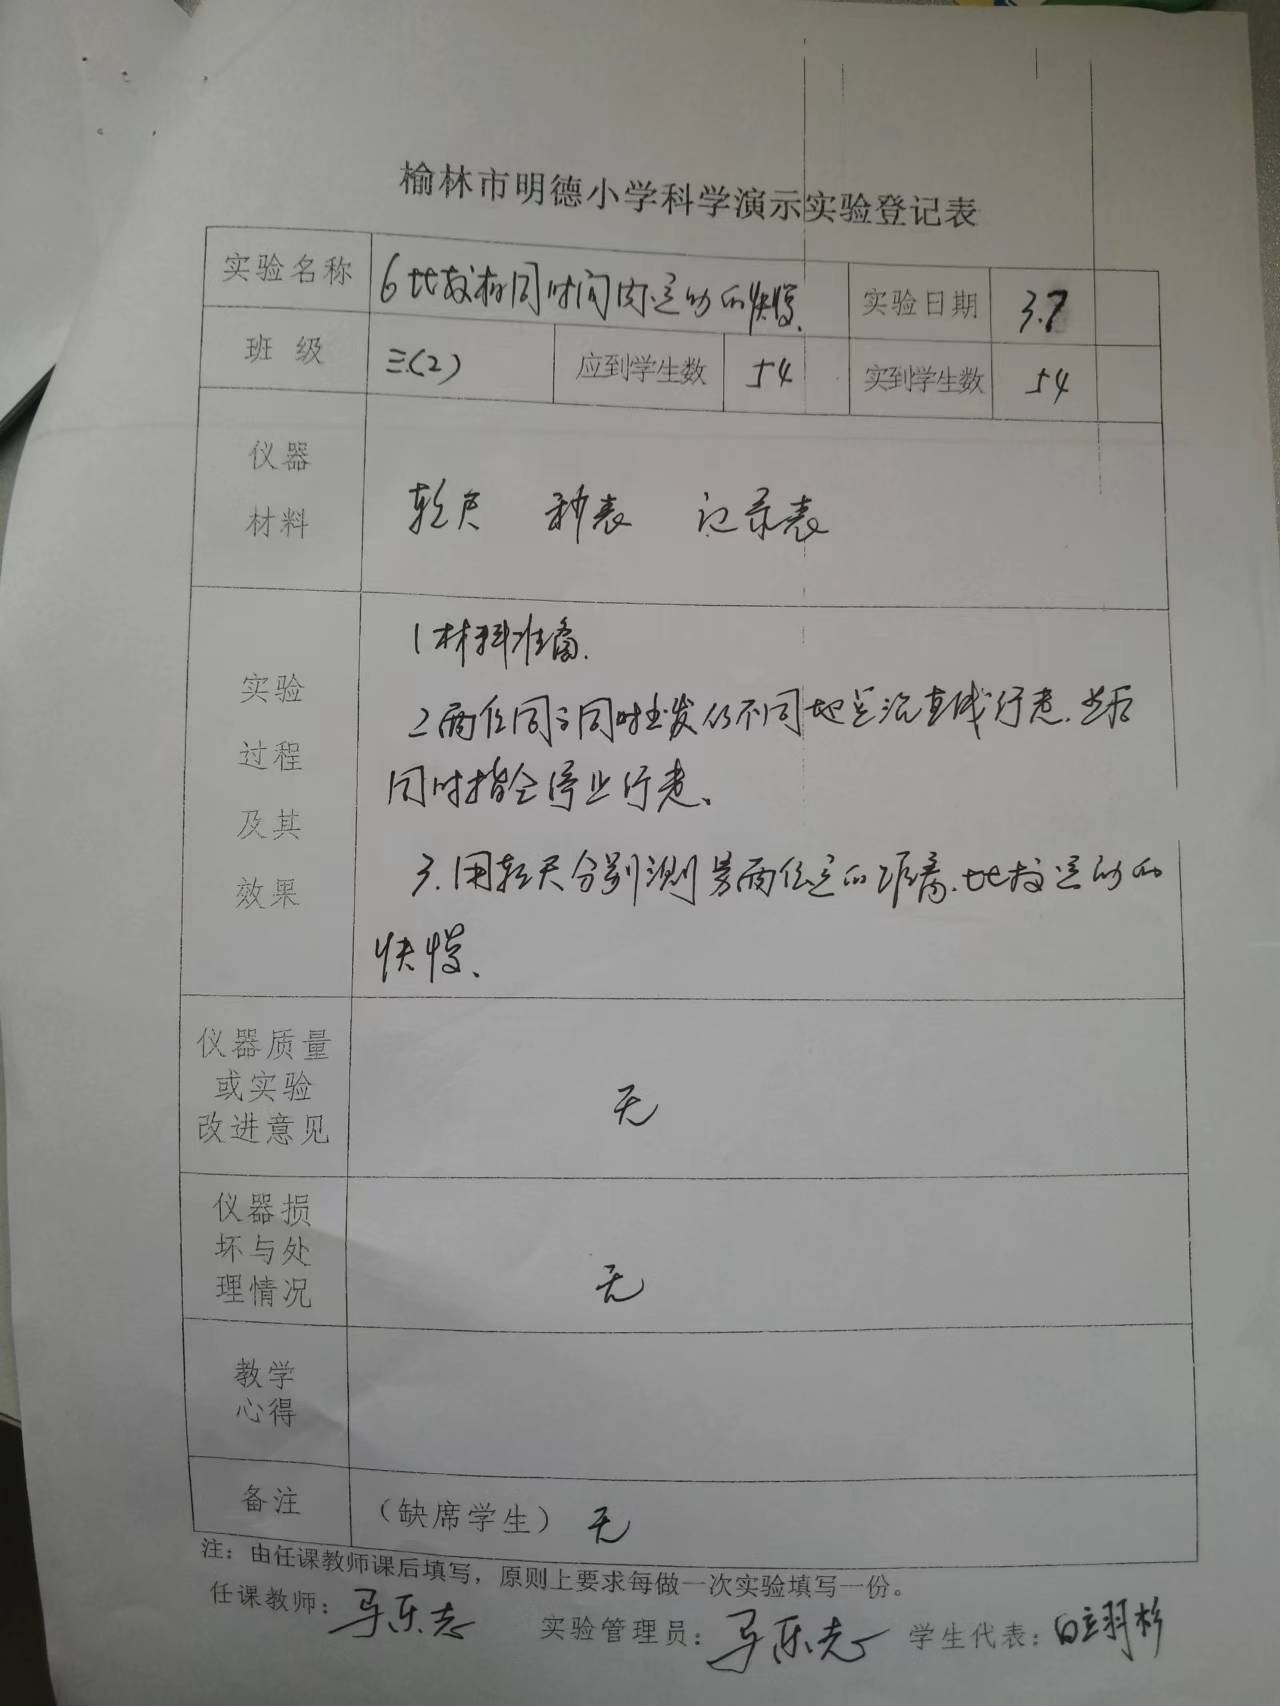 榆林市明德小学科学演示实验登记表
实验名称 6比较相同时间内运动的快慢. 实验日期 3.7
班 级 三(2) 应到学生数 54 实到学生数 54
仪器
材料
软尺 秒表 记录表
实验
过程
及其
效果
1材料准备.
2两位同学同时出发从不同地点沿直线行走.然后
同时指令停止行走、
3.用软尺分别测量两位走的距离.比较运动的
快慢、
仪器质量
或实验
改进意见
无
仪器损
坏与处
理情况
无
教学
心得
备注 (缺席学生) 无
注：由任课教师课后填写，原则上要求每做一次实验填写一份。
任课教师：马乐志 实验管理员：马乐志 学生代表：白翊杉